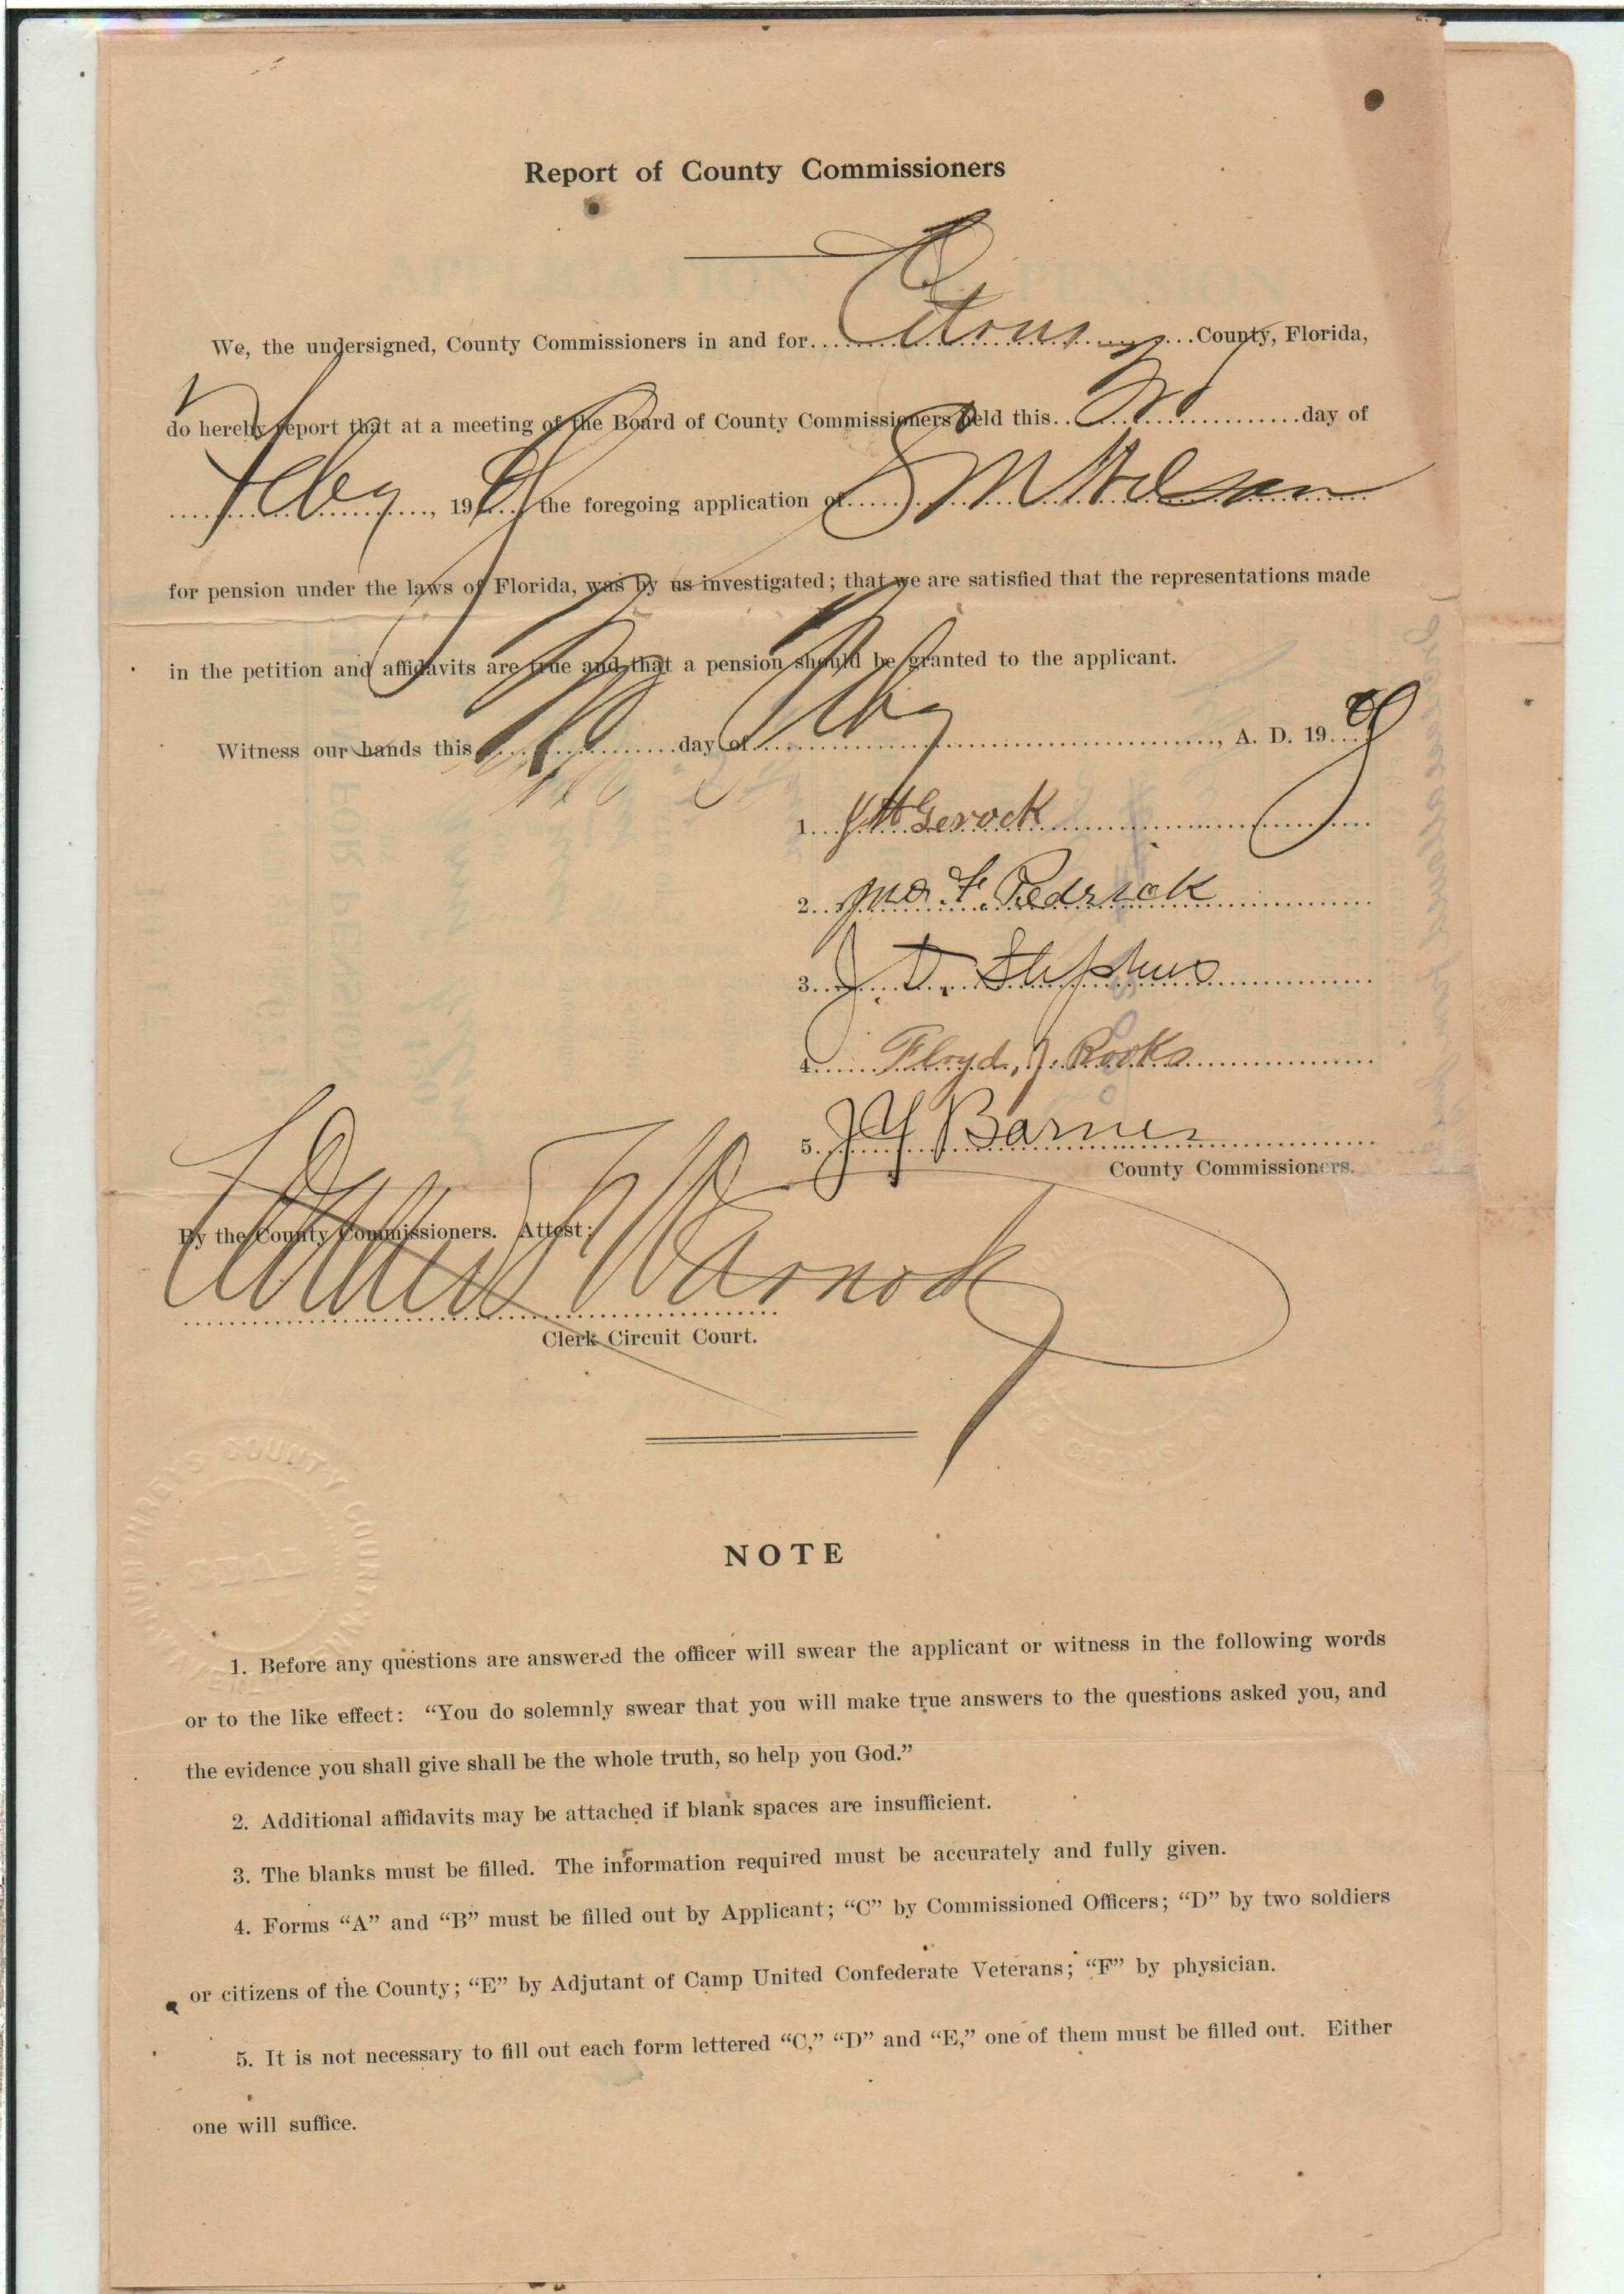 Report of County Commissioners
We, the undersigned, County Commissioners in and for Citrus County, Florida,
do hereby report that at a meeting of the Board of County Commissioners held this day of
Feby, 19 the foregoing application of
for pension under the laws of Florida, was by us investigated; that we are satisfied that the representations made
in the petition and affidavits are true and that a pension should be granted to the applicant.
Witness our hands this day of Feby, A. D. 19
1. Gerock
2. Jno. F. Pedrick
3. J. T. Stephens
4. Floyd, J. Rooks
5. J Y Barnes
County Commissioners.
By the County Commissioners. Attest:
Warnock
Clerk Circuit Court.
COUNTY COURT
SEAL
CITRUS CO
NOTE
1. Before any questions are answered the officer will swear the applicant or witness in the following words
or to the like effect: “You do solemnly swear that you will make true answers to the questions asked you, and
the evidence you shall give shall be the whole truth, so help you God.”
2. Additional affidavits may be attached if blank spaces are insufficient.
3. The blanks must be filled. The information required must be accurately and fully given.
4. Forms “A” and “B” must be filled out by Applicant; “C” by Commissioned Officers; “D” by two soldiers
or citizens of the County; “E” by Adjutant of Camp United Confederate Veterans; “F” by physician.
5. It is not necessary to fill out each form lettered “C,” “D” and “E,” one of them must be filled out. Either
one will suffice.